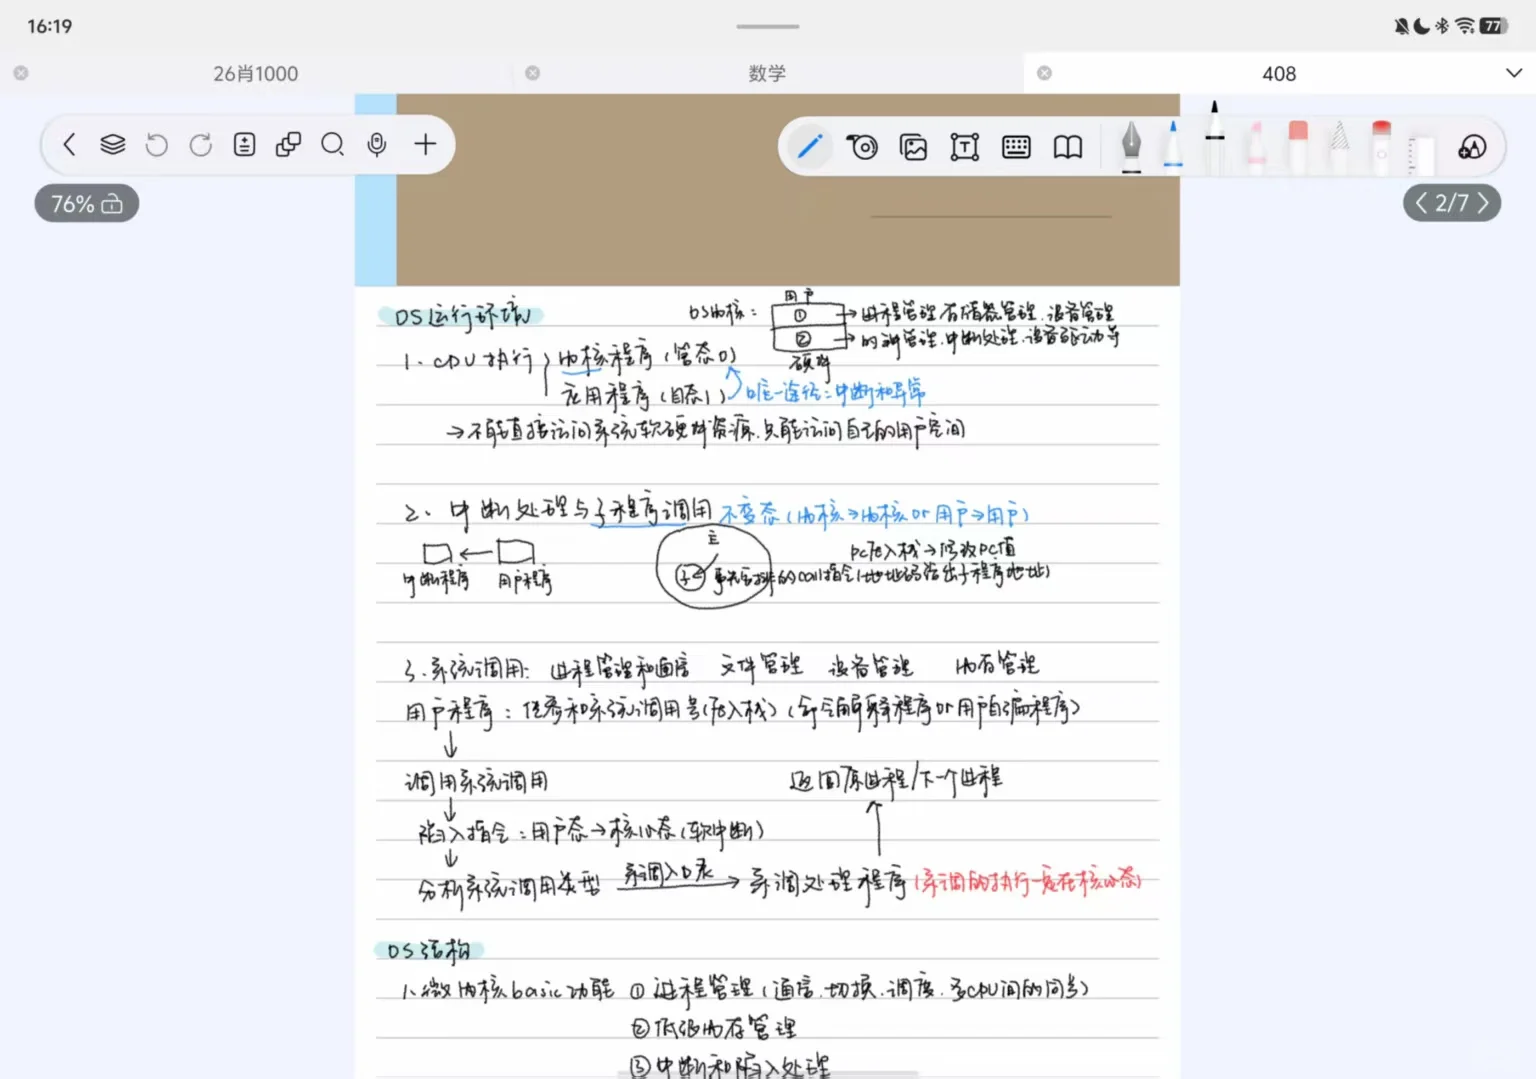 16:19
77
26肖1000
数学
408
76%
2/7
OS运行环境
OS内核：
用户
① → 进程管理.存储器管理.设备管理
② → 时钟管理.中断处理.设备驱动等
硬件
1. CPU执行
内核程序（管态0）
应用程序（目态1）
唯一途径：中断和异常
→不能直接访问系统软硬件资源.只能访问自己的用户空间
2. 中断处理与子程序调用 不变态（内核→内核or用户→用户）
中断程序 ← 用户程序
主
子
PC压入栈→修改PC值
事先安排的call指令（地址码给出子程序地址）
3.系统调用：进程管理和通信 文件管理 设备管理 内存管理
用户程序：传参和系统调用号（压入栈）（命令解释程序or用户自编程序）
↓
调用系统调用
返回原进程/下一个进程
↓
陷入指令：用户态→核心态（软中断）
↓
分析系统调用类型 系调入口表 → 系调处理程序（系调的执行一定在核心态）
OS结构
1.微内核basic功能 ①进程管理（通信.切换.调度.多CPU间的同步）
②低级内存管理
③中断和陷入处理